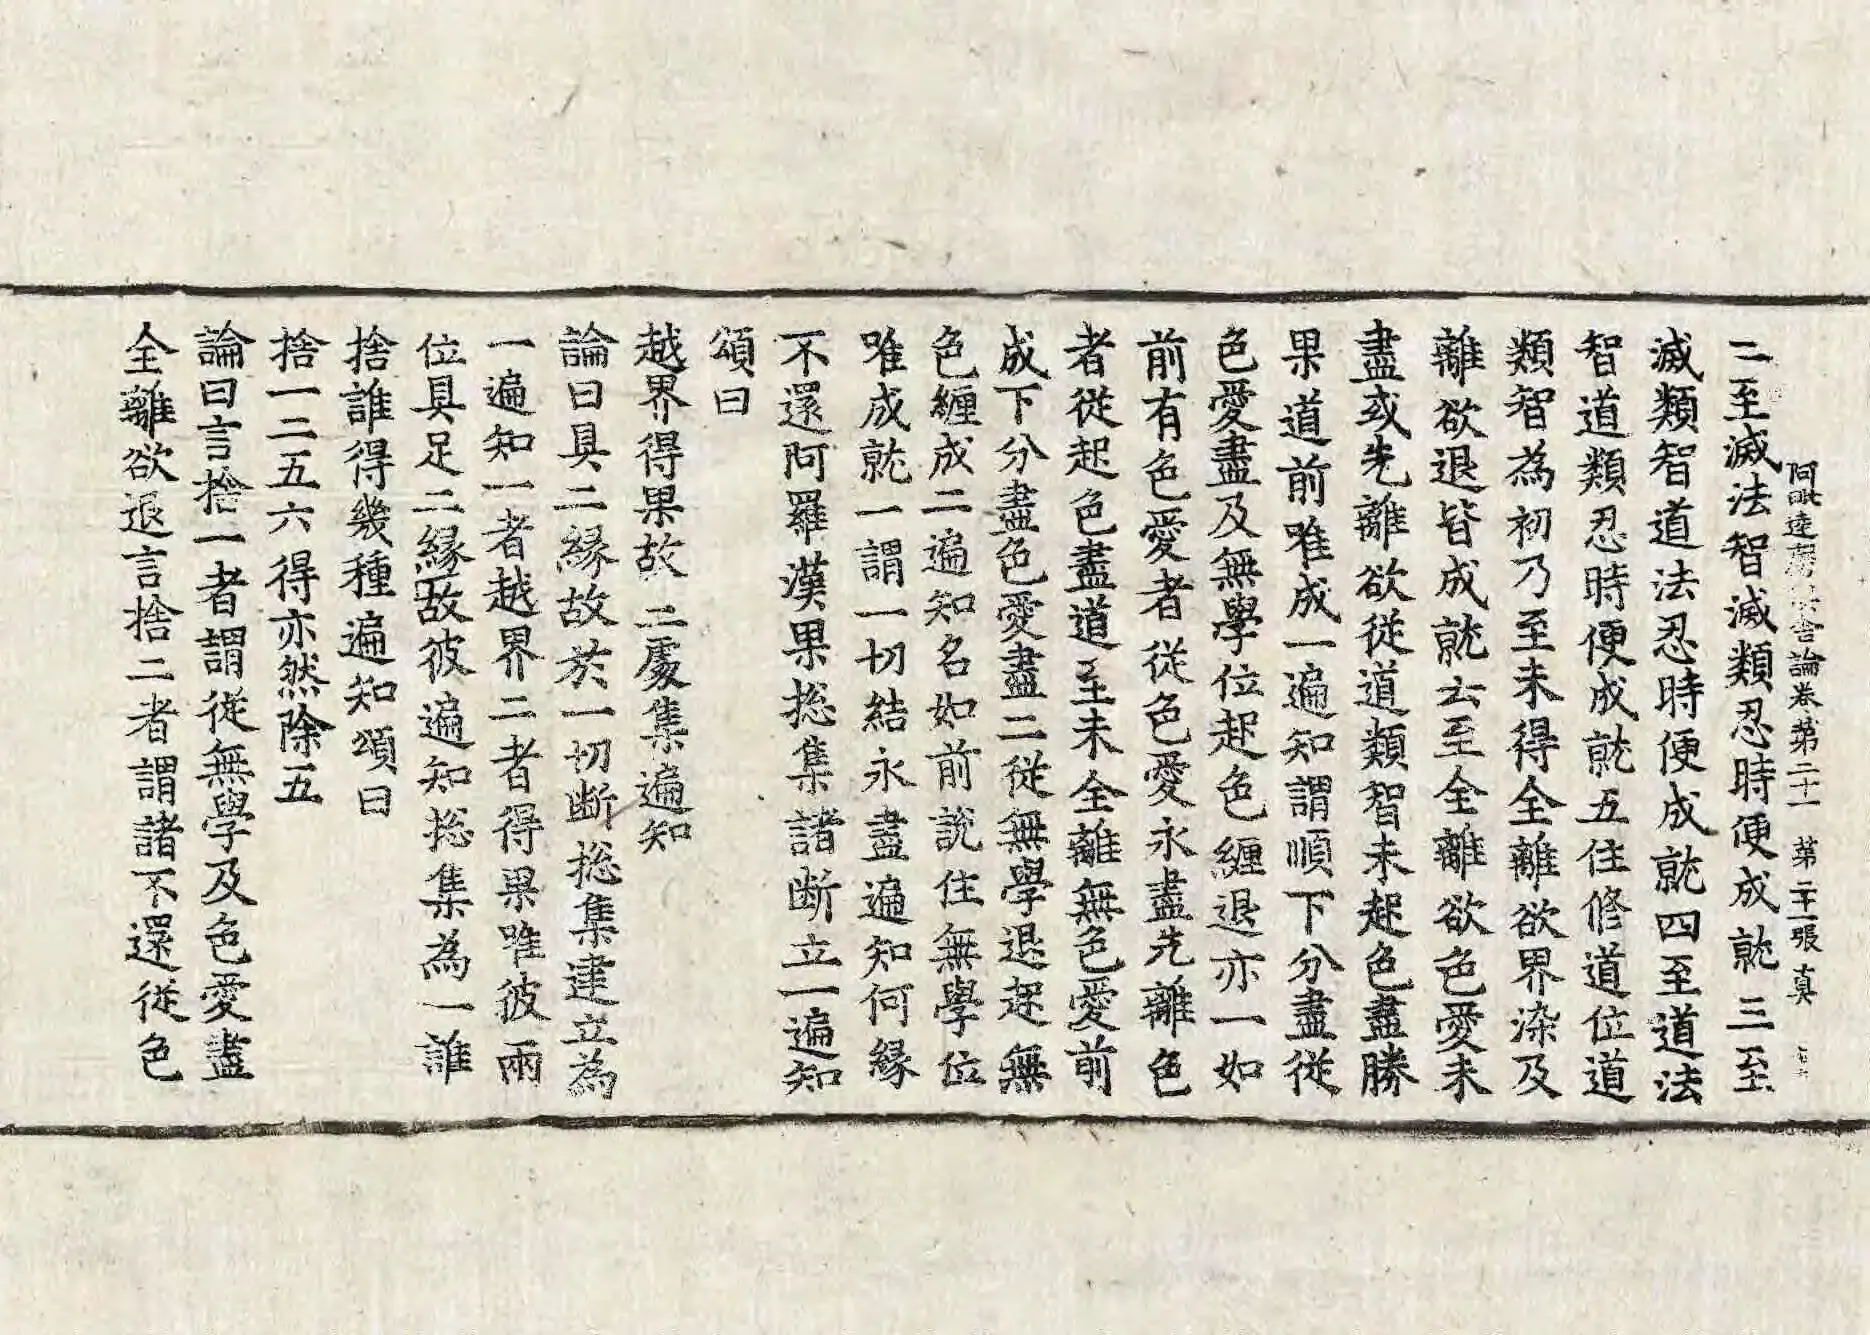 阿毗達磨俱舍論卷第二十一 第二十一張 真
二至滅法智滅類忍時便成就三至
滅類智道法忍時便成就四至道法
智道類忍時便成就五住修道位道
類智為初乃至未得全離欲界染及
離欲退皆成就六至全離欲色愛未
盡或先離欲從道類智未起色盡勝
果道前唯成一遍知謂順下分盡從
色愛盡及無學位起色纏退亦一如
前有色愛者從色愛永盡先離色
者從起色盡道至未全離無色愛前
成下分盡色愛盡二從無學退起無
色纏成二遍知名如前說住無學位
唯成就一謂一切結永盡遍知何緣
不還阿羅漢果捴集諸斷立一遍知
頌曰
越界得果故 二處集遍知
論曰具二緣故於一切斷捴集建立為
一遍知一者越界二者得果唯彼兩
位具足二緣故彼遍知捴集為一誰
捨誰得幾種遍知頌曰
捨一二五六得亦然除五
論曰言捨一者謂從無學及色愛盡
全離欲退言捨二者謂諸不還從色